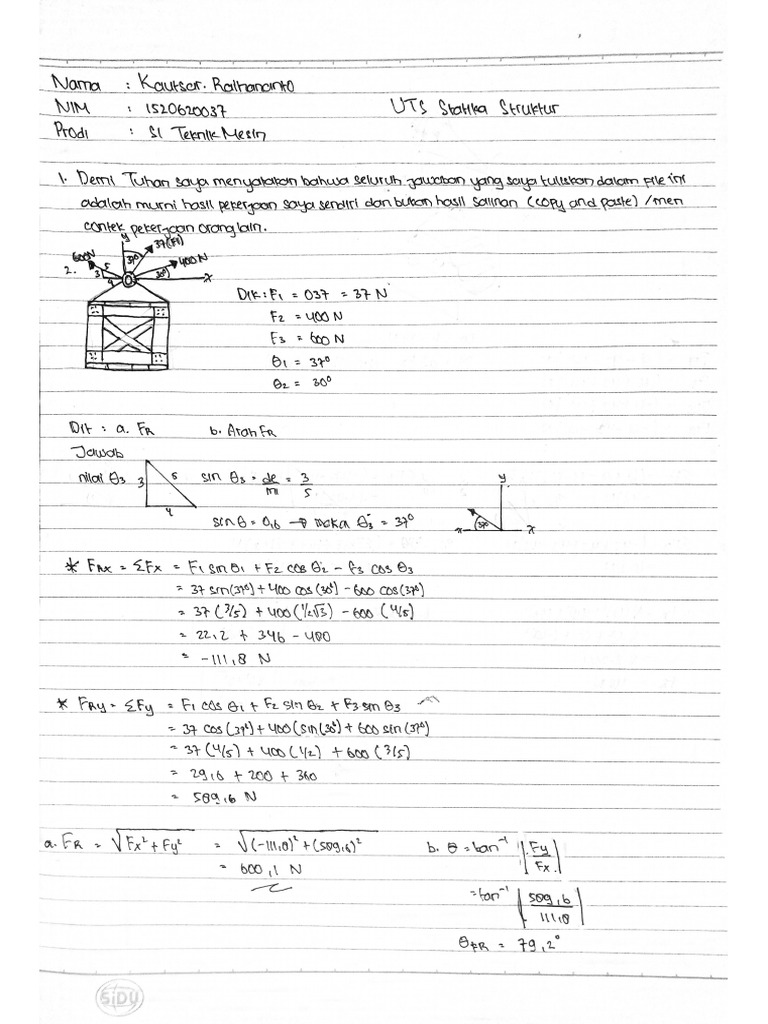 Nama : Kautsar. Raihananto
NIM : 1520620037 UTS Statika Struktur
Prodi : S1 Teknik Mesin
1. Demi Tuhan saya menyatakan bahwa seluruh jawaban yang saya tuliskan dalam file ini
adalah murni hasil pekerjaan saya sendiri dan bukan hasil salinan (copy and paste) /men
contek pekerjaan orang lain.
2.
y
37(F1)
600N
5
3
4
37°
400 N
30°
x
Dik : F1 = 037 = 37 N
F2 = 400 N
F3 = 600 N
θ1 = 37°
θ2 = 30°
Dit : a. FR b. Arah FR
Jawab
nilai θ3 3 5 4 sin θ3 = de/mi = 3/5
sin θ = 0,6 → maka θ3 = 37°
y
x- 37° x
* FRx = ΣFx = F1 sin θ1 + F2 cos θ2 - f3 cos θ3
= 37 sin(37°) + 400 cos(30°) - 600 cos(37°)
= 37 (3/5) + 400 (1/2√3) - 600 (4/5)
= 22,2 + 346 - 480
= -111,8 N
* FRy = ΣFy = F1 cos θ1 + F2 sin θ2 + F3 sin θ3
= 37 cos (37°) + 400 (sin (30°) + 600 sin (37°)
= 37 (4/5) + 400 (1/2) + 600 (3/5)
= 29,6 + 200 + 360
= 589,6 N
a. FR = √Fx² + Fy² = √(-111,8)² + (589,6)² b. θ = tan⁻¹ |Fy/Fx|
= 600,1 N
= tan⁻¹ |589,6/111,8|
θFR = 79,2°
SiDU